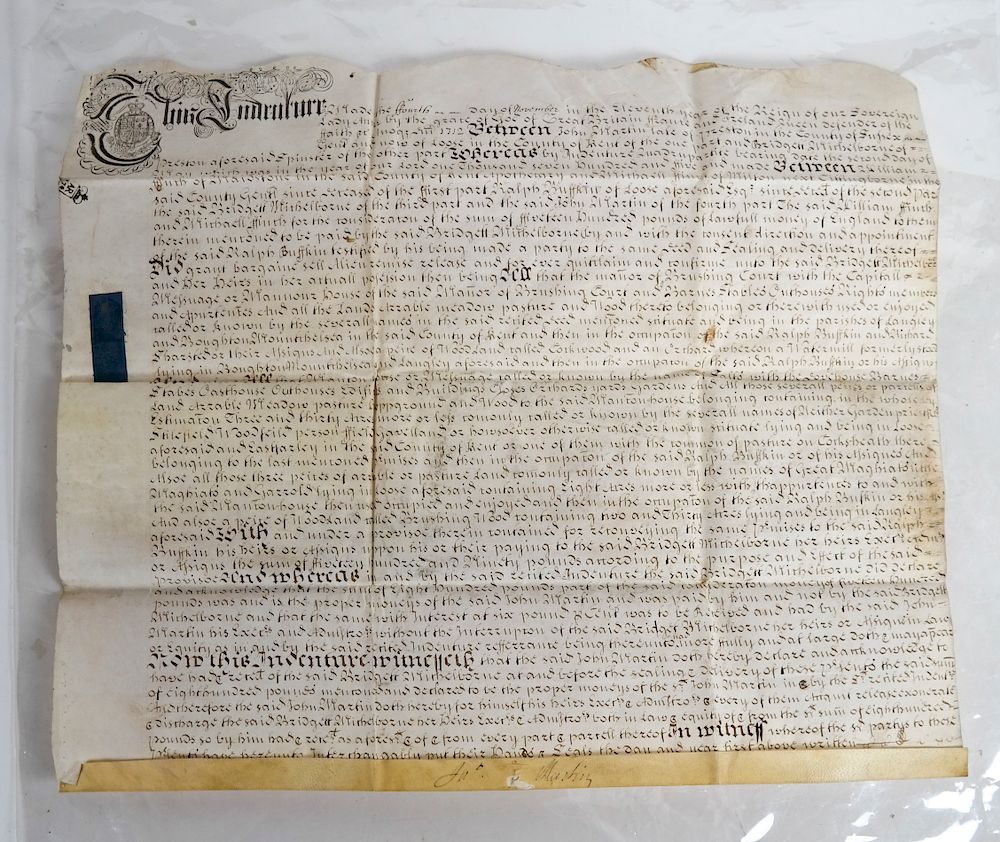 This Indenture Made the fourth day of November in the Eleventh year of the Reign of our Sovereign
Lady Anne by the grace of God of Great Britain France Ireland Defender of the
faith &c Annoqz Dni 1712 Between John Martin late of Preston in the County of Sussex
Gent and now of Loose in the County of Kent of the one part and Bridgett Michelborne of
Preston aforesaid Spinster of the other part Whereas by Indenture Quadrupartite bearing date the second day of
May which was in the year Between William
in the said County of Kent Apothecary and Michaell ffinch of
said County Gent since deceased of the ffirst part Ralph Buffkin of Loose aforesaid Esqr since of the second part
the said Bridgett Michelborne of the third part and the said John Martin of the fourth part The said William ffinch
and Michaell ffinch for the consideracon of the sum of ffiveteen Hundred pounds of Lawfull money of England to them
therein mentioned to be paid by the said Bridgett Michelborne by and with the consent direction and appointment
of the said Ralph Buffkin testifyed by his being made a party to the same Deed and Sealing and Delivery thereof
Did grant bargaine sell Alien release and for ever quitclaim and confirme unto the said Bridgett Michelborne
and Her Heirs in her actuall possession then being All that the mannor of Brushing Court with the Capitall
Messuage or Mannour House of the said Mannor of Brushing Court and Barnes Stables Outhouses Rights members
and Appurtences And all the Land Arrable meadow pasture and Wood thereto belonging or therewith used or enjoyed
called or known by the severall names in the said recited Deed mentioned situate and being in the parishes of Langley
and Boughton Mountchelsea in the said County of Kent and then in the occupacon of the said Ralph Buffkin and Richard
or their Assigns And Alsoe a peice of Wood Land called Corkwood and an Orchard whereon a Watermill formerly stood
lying in Boughton Mountchelsea and Langley aforesaid and then in the occupacon of the said Ralph Buffkin or his Assigns
All that Mannor house or Messuage called or known by the name of with the Barnes
Stables Oasthouse Outhouses Edifices and Buildings Closes Orchards yards Gardens and All those severall peices or parcells
Land Arrable Meadow pasture hoppground and Wood to the said Mannorhouse belonging containing in the whole
Estimacon Three and thirty Acres more or less comonly called or known by the severall names of Neither Garden
Stilefield Woodfeild person ffield Gavelland or howsoever otherwise called or known situate lying and being in Loose
aforesaid and East farley in the said County of Kent or one of them with the common of pasture on Corksheath there
belonging to the last mentioned premises and then in the occupacon of the said Ralph Buffkin or of his Assignes And
Alsoe all those three peices of arrable or pasture Land comonly called or known by the names of Great Maghiats little
Maghiats and Garrold lying in Loose aforesaid containing Eight Acres more or less with th'appurtences to and with
the said Mannorhouse then used occupied and enjoyed and then in the occupacon of the said Ralph Buffkin or his
And alsoe a peice of Woodland called Brushing Wood containing two and Thirty Acres lying and being in Langley
aforesaid With and under a proviso therein contained for reconveying the same premises to the said Ralph
Buffkin his heirs or Assigns upon his or their paying to the said Bridgett Michelborne her heirs Exects Admrs
or Assigns the sum of ffiveteen Hundred and Ninety pounds according to the purpose and Effect of the said
proviso And whereas in and by the said recited Indenture the said Bridgett Michelborne did declare
and acknowledge that the sum of Eight Hundred pounds part of the said consideracon money of ffiveteen Hundred
pounds was and is the proper moneys of the said John Martin and was paid by him and not by the said Bridgett
Michelborne and that the same with Interest at six pound p Cent was to be Received and had by the said John
Martin his Exects and Admstrs without the Interrupcon of the said Bridget Michelborne her heirs or Assignes in Law
or Equity as in and by the said recited Indenture refferrance being thereunto more fully and at large doth & may appear
Now this Indenture witnesseth that the said John Martin doth hereby declare and acknowledge to
have had & reced of the said Bridgett Michelborne at and before the sealing & delivery of these prsents the said sum
of Eighthundred pounds mentioned and declared to be the proper moneys of the sd John Martin in & by the sd recited Indenture
And therefore the said John Martin doth hereby for himself his heirs Exects & Admstrs & every of them Acquit release exonerate
& Discharge the said Bridgett Michelborne her Heirs Exects & Admstrs both in Law & equity of & from the sd sum of Eighthundred
pounds so by him had & reced as aforesd & of & from every part & parcell thereof In witness whereof the sd partys to these
prsents have hereunto Interchangably put their Hands & Seals the day and year first above written
Jno Martin